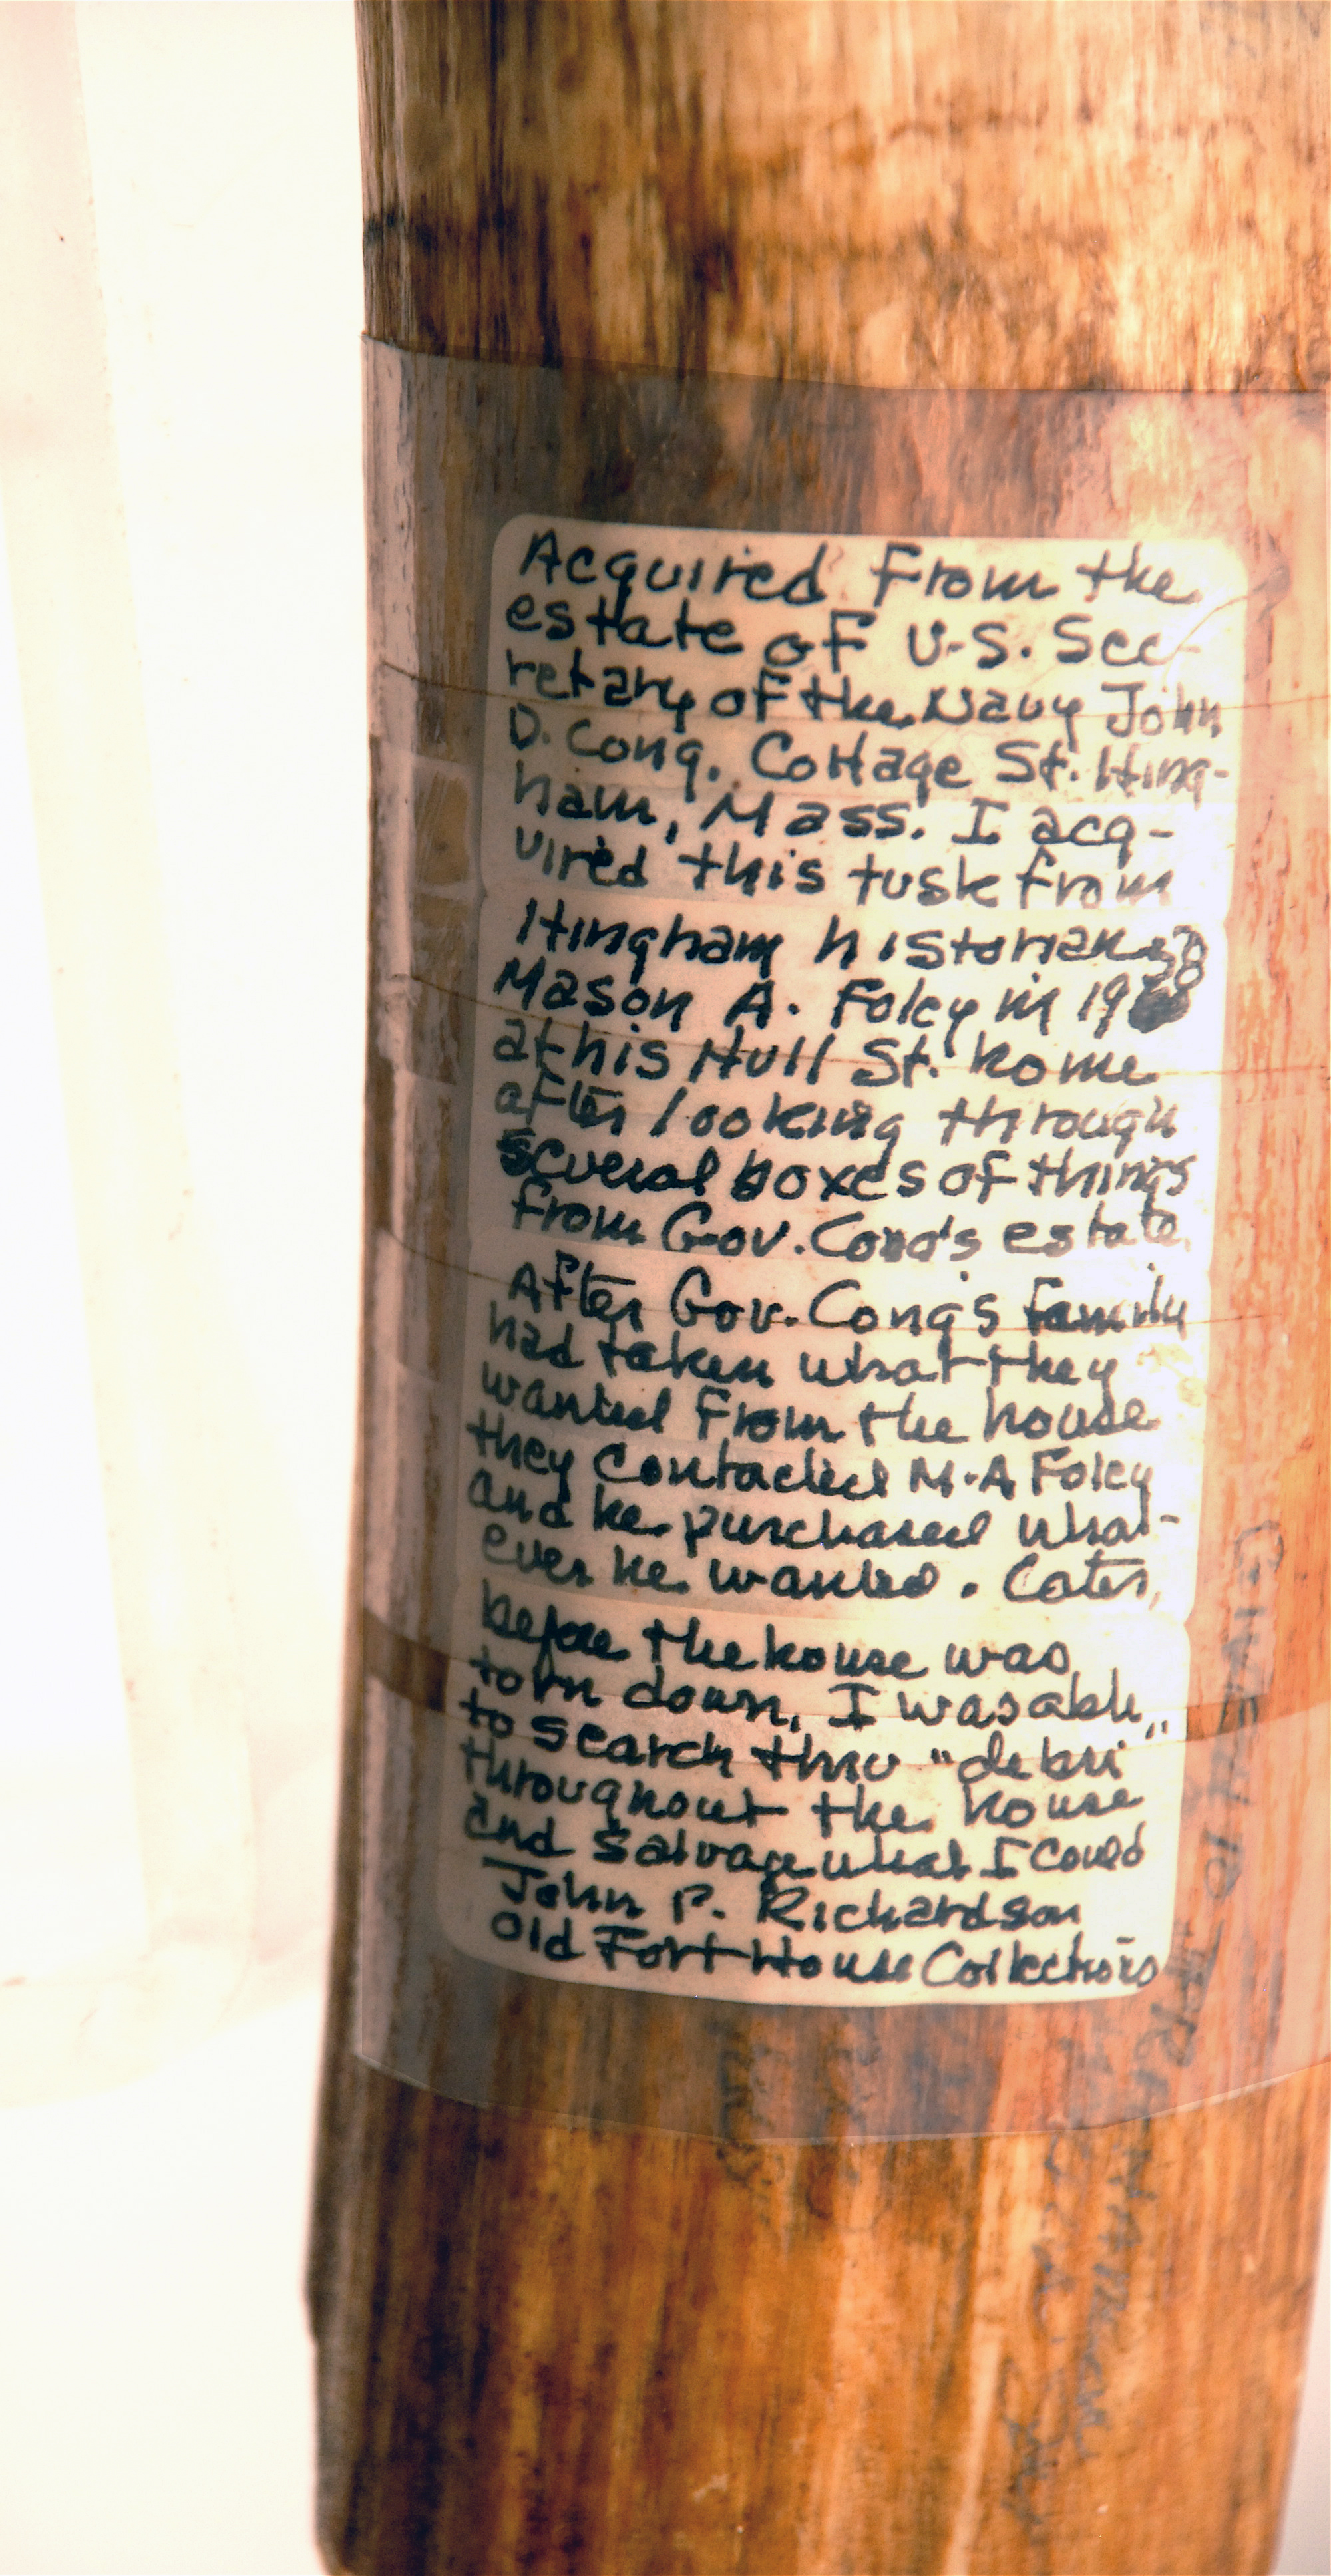 Acquired From the
estate of U.S. Sec-
retary of the Navy John
D. Long. Cottage St. Hing-
ham, Mass. I acq-
uired this tusk from
Hingham historian
Mason A. Foley in 1958
at his Hull St. home
after looking through
several boxes of things
from Gov. Long's estate.
After Gov. Long's family
had taken what they
wanted from the house
they contacted M.A Foley
and he purchased what-
ever he wanted. Later,
before the house was
torn down, I was able
to search thru "debri"
throughout the house
and salvage what I could
John P. Richardson
Old Fort House Collections
GIVEN TO